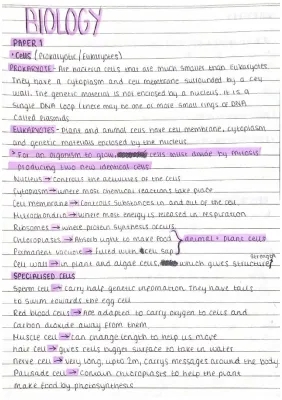 BIOLOGY
PAPER 1
• Cells (Prokaryotic/Eukaryotes)
PROKARYOTE - Are bacteria cells that are much smaller than Eukaryotes
They have a cytoplasm and cell membrane surrounded by a cell
wall. The genetic material is not enclosed by a nucleus. It is a
single DNA loop (there may be one or more small rings of DNA
called plasmids
EUKARYOTES - Plant and animal cells have cell membrane, cytoplasm
and genetic materials enclosed by the nucleus
> For an organism to grow, cells must divide by mitosis
producing two new identical cells.
Nucleus → Controls the activities of the cells
Cytoplasm → where most chemical reactions take place
Cell membrane → Controls substances in and out of the cell
Mitochondria → Where most energy is released in respiration
Ribosomes → where protein synthesis occurs
Chloroplasts → Absorb light to make food } animal + plant cells
Permanent vacuole → filled with cell sap
Cell wall → in plant and algae cells, which gives strength structure
SPECIALISED CELLS
Sperm cell → carry half genetic information. They have tails
to swim towards the egg cell
Red blood cells → Are adapted to carry oxygen to cells and
carbon dioxide away from them
Muscle cell → can change length to help us move
hair cell → gives cells bigger surface to take in water
Nerve cell → very long, upto 2m, carrys messages around the body
Palisade cell → contain chloroplasts to help the plant
make food by photosynthesis